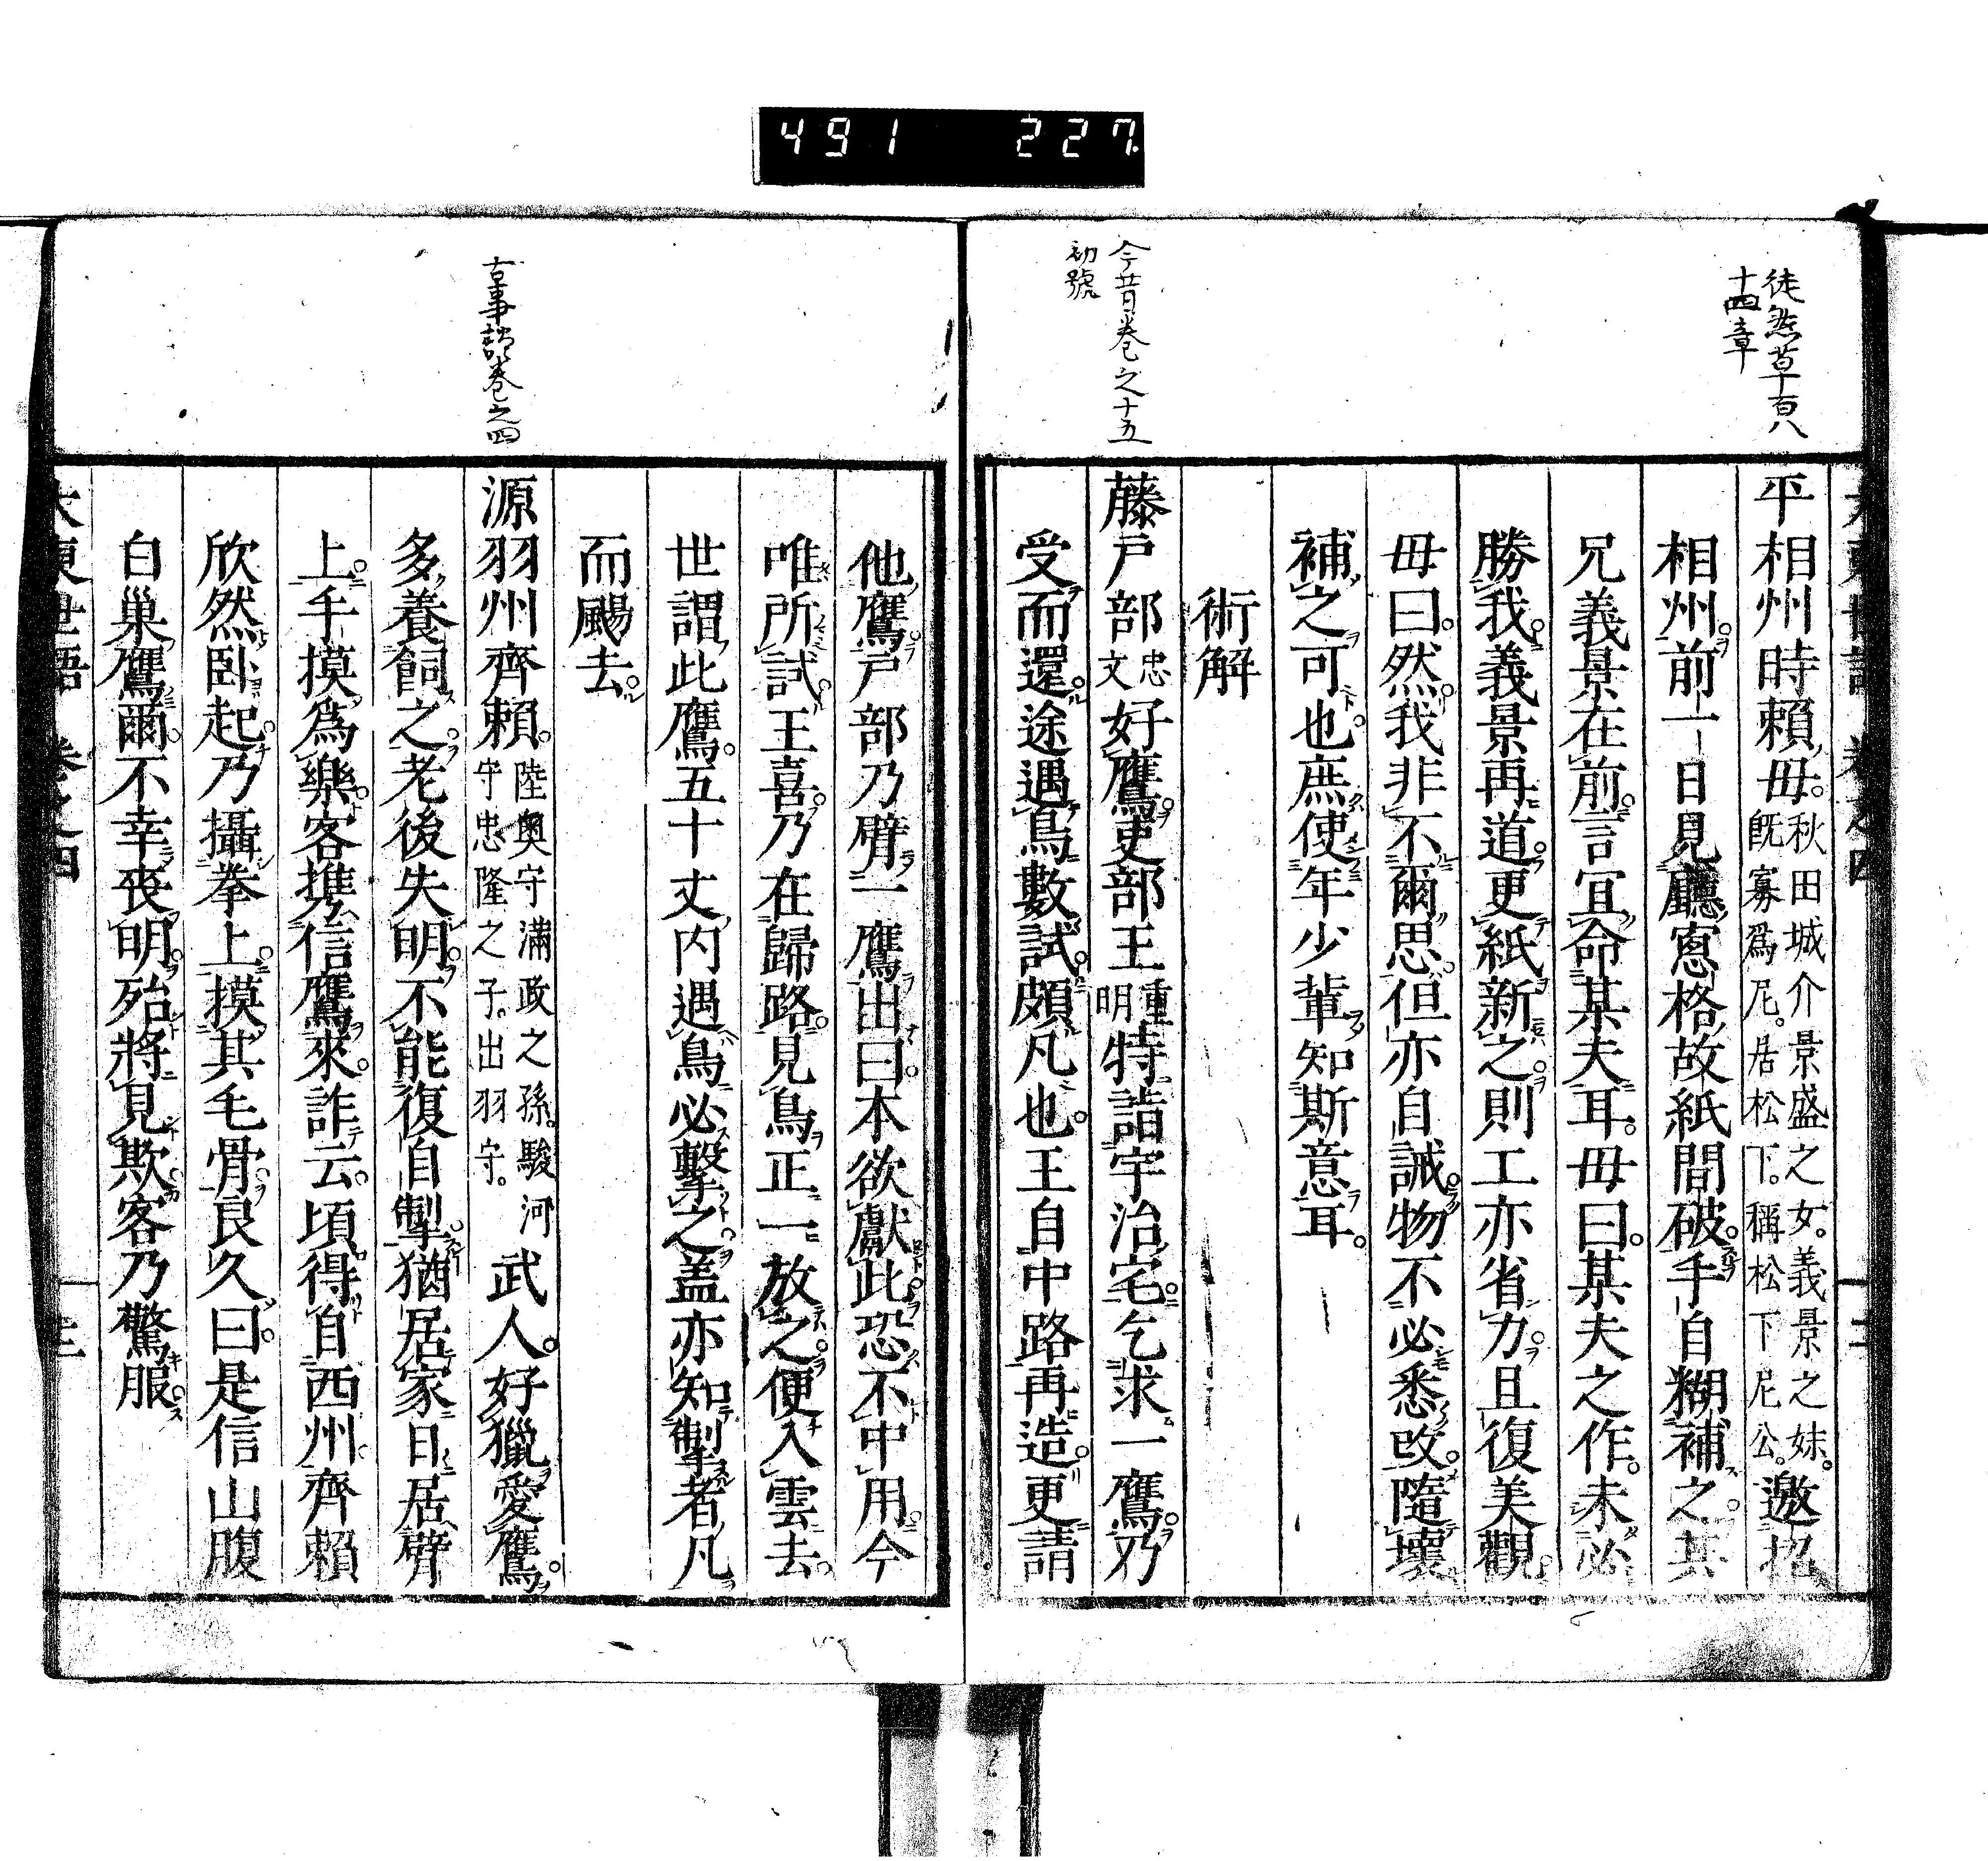 491 227.
徒然草百八
十四章
今昔卷之十五
初號
大東世語 卷之四
平相州時頼母。秋田城介景盛之女。義景之妹。既寡爲尼。居松下。稱松下尼公。邀招
相州。前一日見廳窻格故紙間破。手自糊補之。其
兄義景在前。言宜命某夫耳。母曰。某夫之作。未必
勝我。義景再道。更紙新之。則工亦省力。且復美觀。
母曰。然。我非不爾思。但亦自誡。物不必悉改。隨壞
補之可也。庶使年少輩知斯意耳。
術解
藤戸部忠文好鷹。吏部王重明特詣宇治宅。乞求一鷹。乃
受而還。途遇鳥數試。頗凡也。王自中路再造。更請
古事談卷之四
他鷹。戸部乃臂一鷹出曰。本欲獻此。恐不中用。今
唯所試。王喜。乃在歸路。見鳥正一放之。便入雲去。
世謂此鷹。五十丈内遇鳥必擊之。盖亦知掣者凡
而颺去。
源羽州齊頼。陸奥守滿政之孫。駿河守忠隆之子。出羽守。武人。好獵愛鷹。
多養飼之。老後失明。不能復自掣。猶居家日居臂
上。手摸爲樂。客携信鷹來。詐云。頃得自西州。齊頼
欣然臥起。乃攝拳上。摸其毛骨。良久曰。是信山腹
白巢鷹爾。不幸喪明。殆將見欺。客乃驚服。
大東世語 卷之四